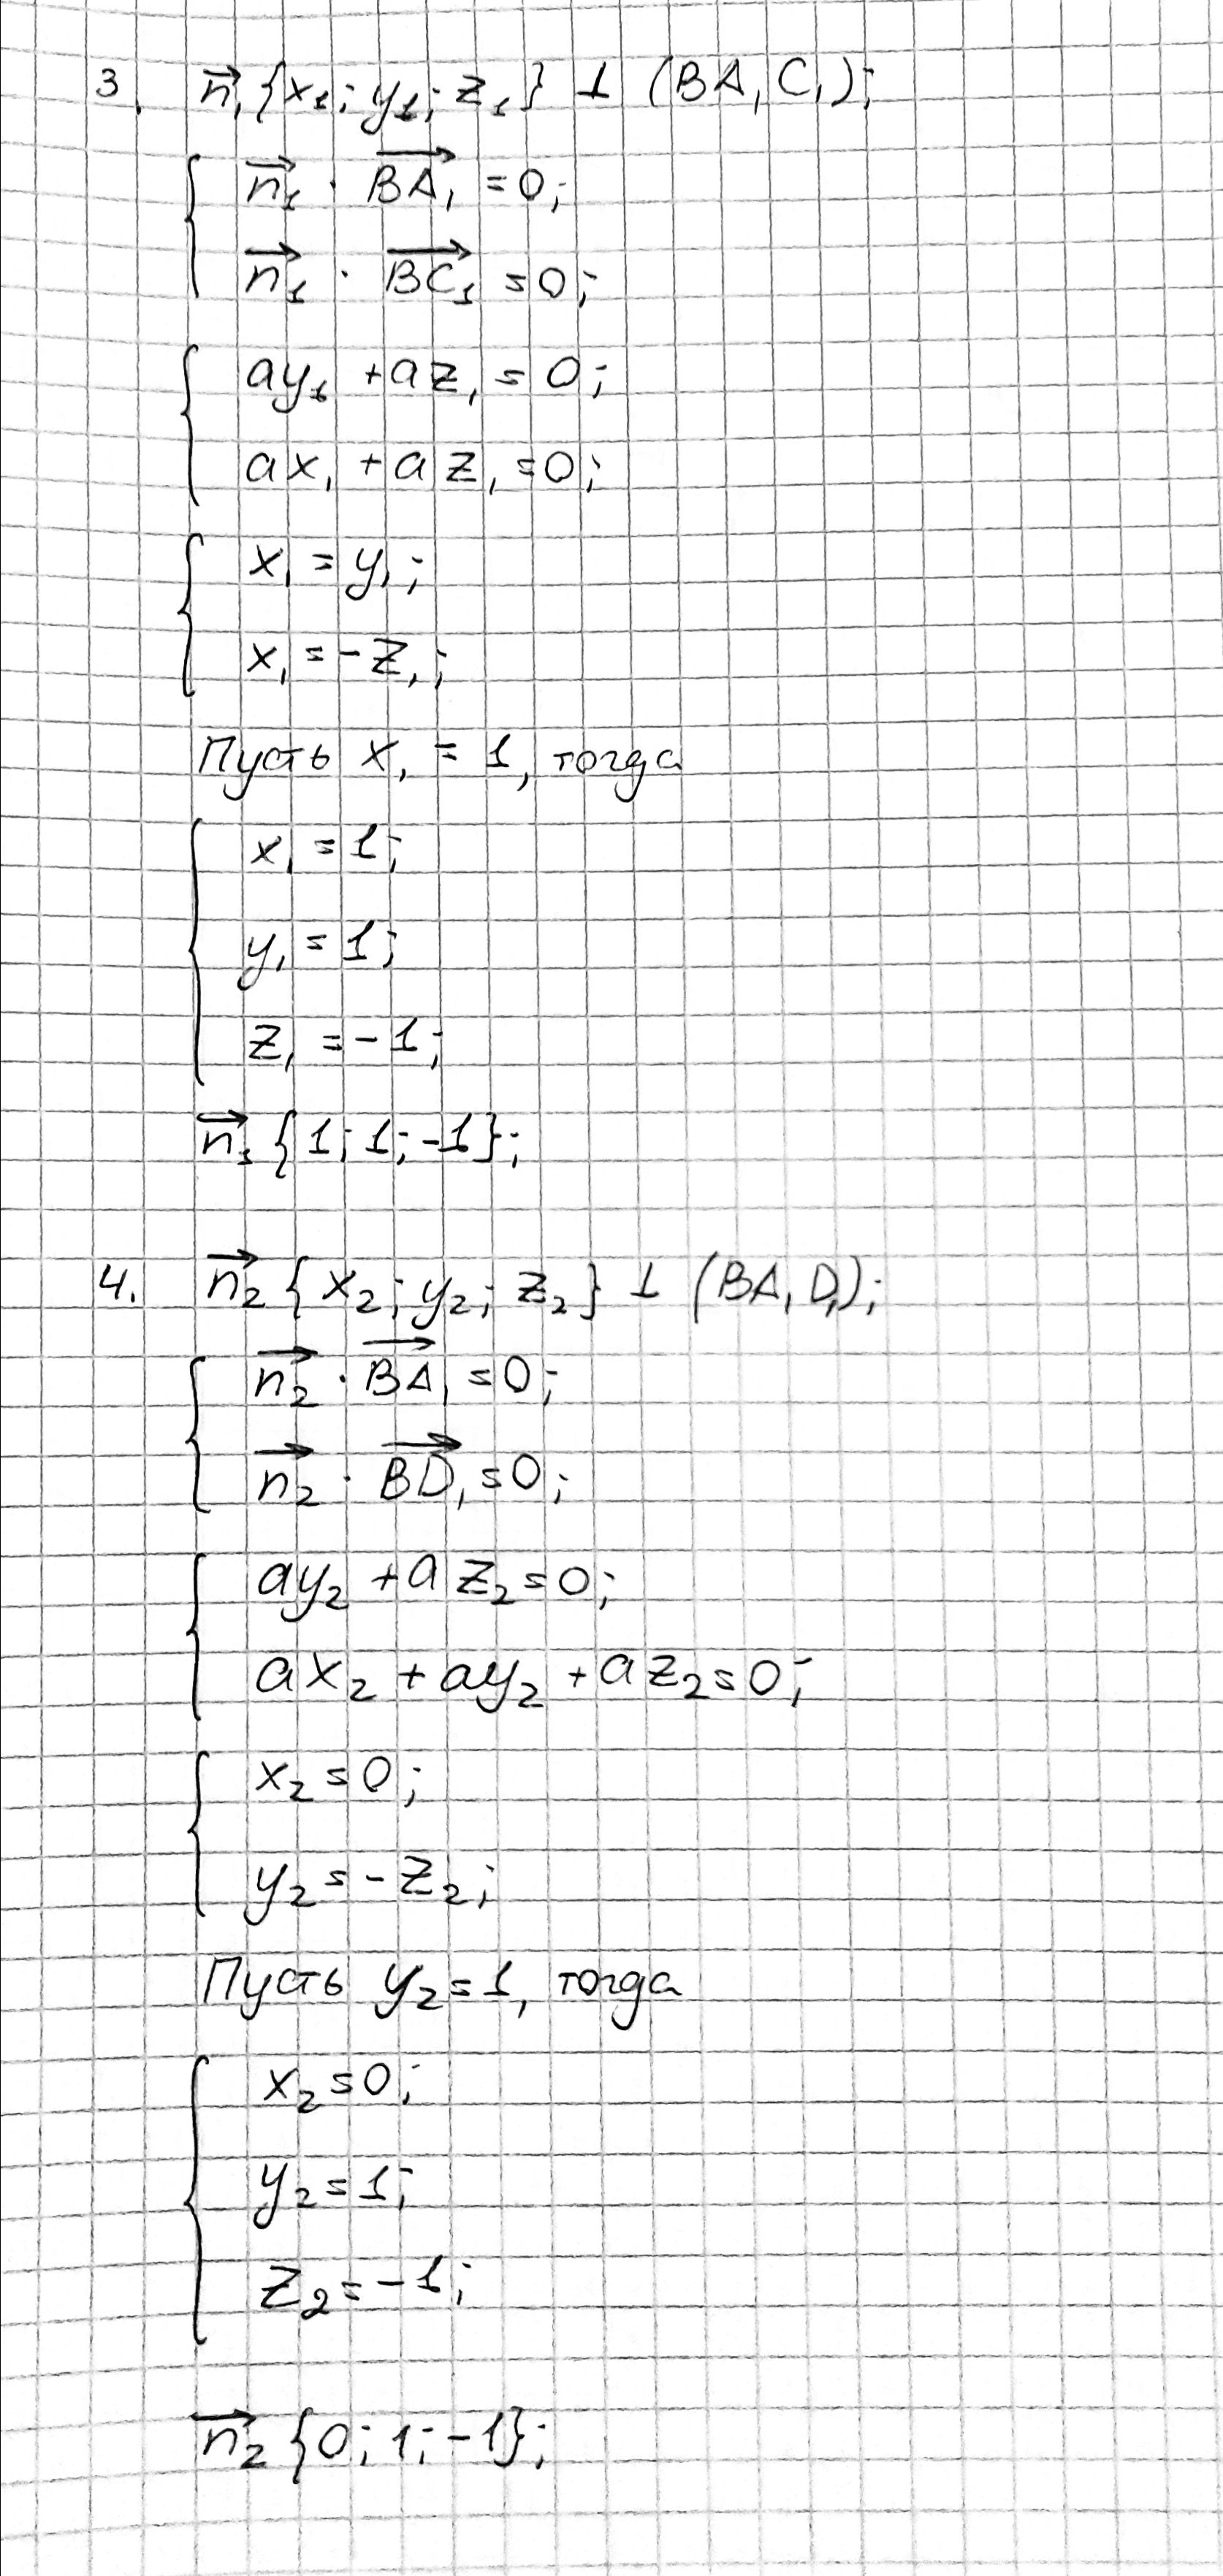 3. n₁⃗ {x₁; y₁; z₁} ⊥ (BA₁C₁);
n₁⃗ · BA₁⃗ = 0;
n₁⃗ · BC₁⃗ = 0;
ay₁ + az₁ = 0;
ax₁ + az₁ = 0;
x₁ = y₁;
x₁ = -z₁;
Пусть x₁ = 1, тогда
x₁ = 1;
y₁ = 1;
z₁ = -1;
n₁⃗ {1; 1; -1};
4. n₂⃗ {x₂; y₂; z₂} ⊥ (BA₁D₁);
n₂⃗ · BA₁⃗ = 0;
n₂⃗ · BD₁⃗ = 0;
ay₂ + az₂ = 0;
ax₂ + ay₂ + az₂ = 0;
x₂ = 0;
y₂ = -z₂;
Пусть y₂ = 1, тогда
x₂ = 0;
y₂ = 1;
z₂ = -1;
n₂⃗ {0; 1; -1};